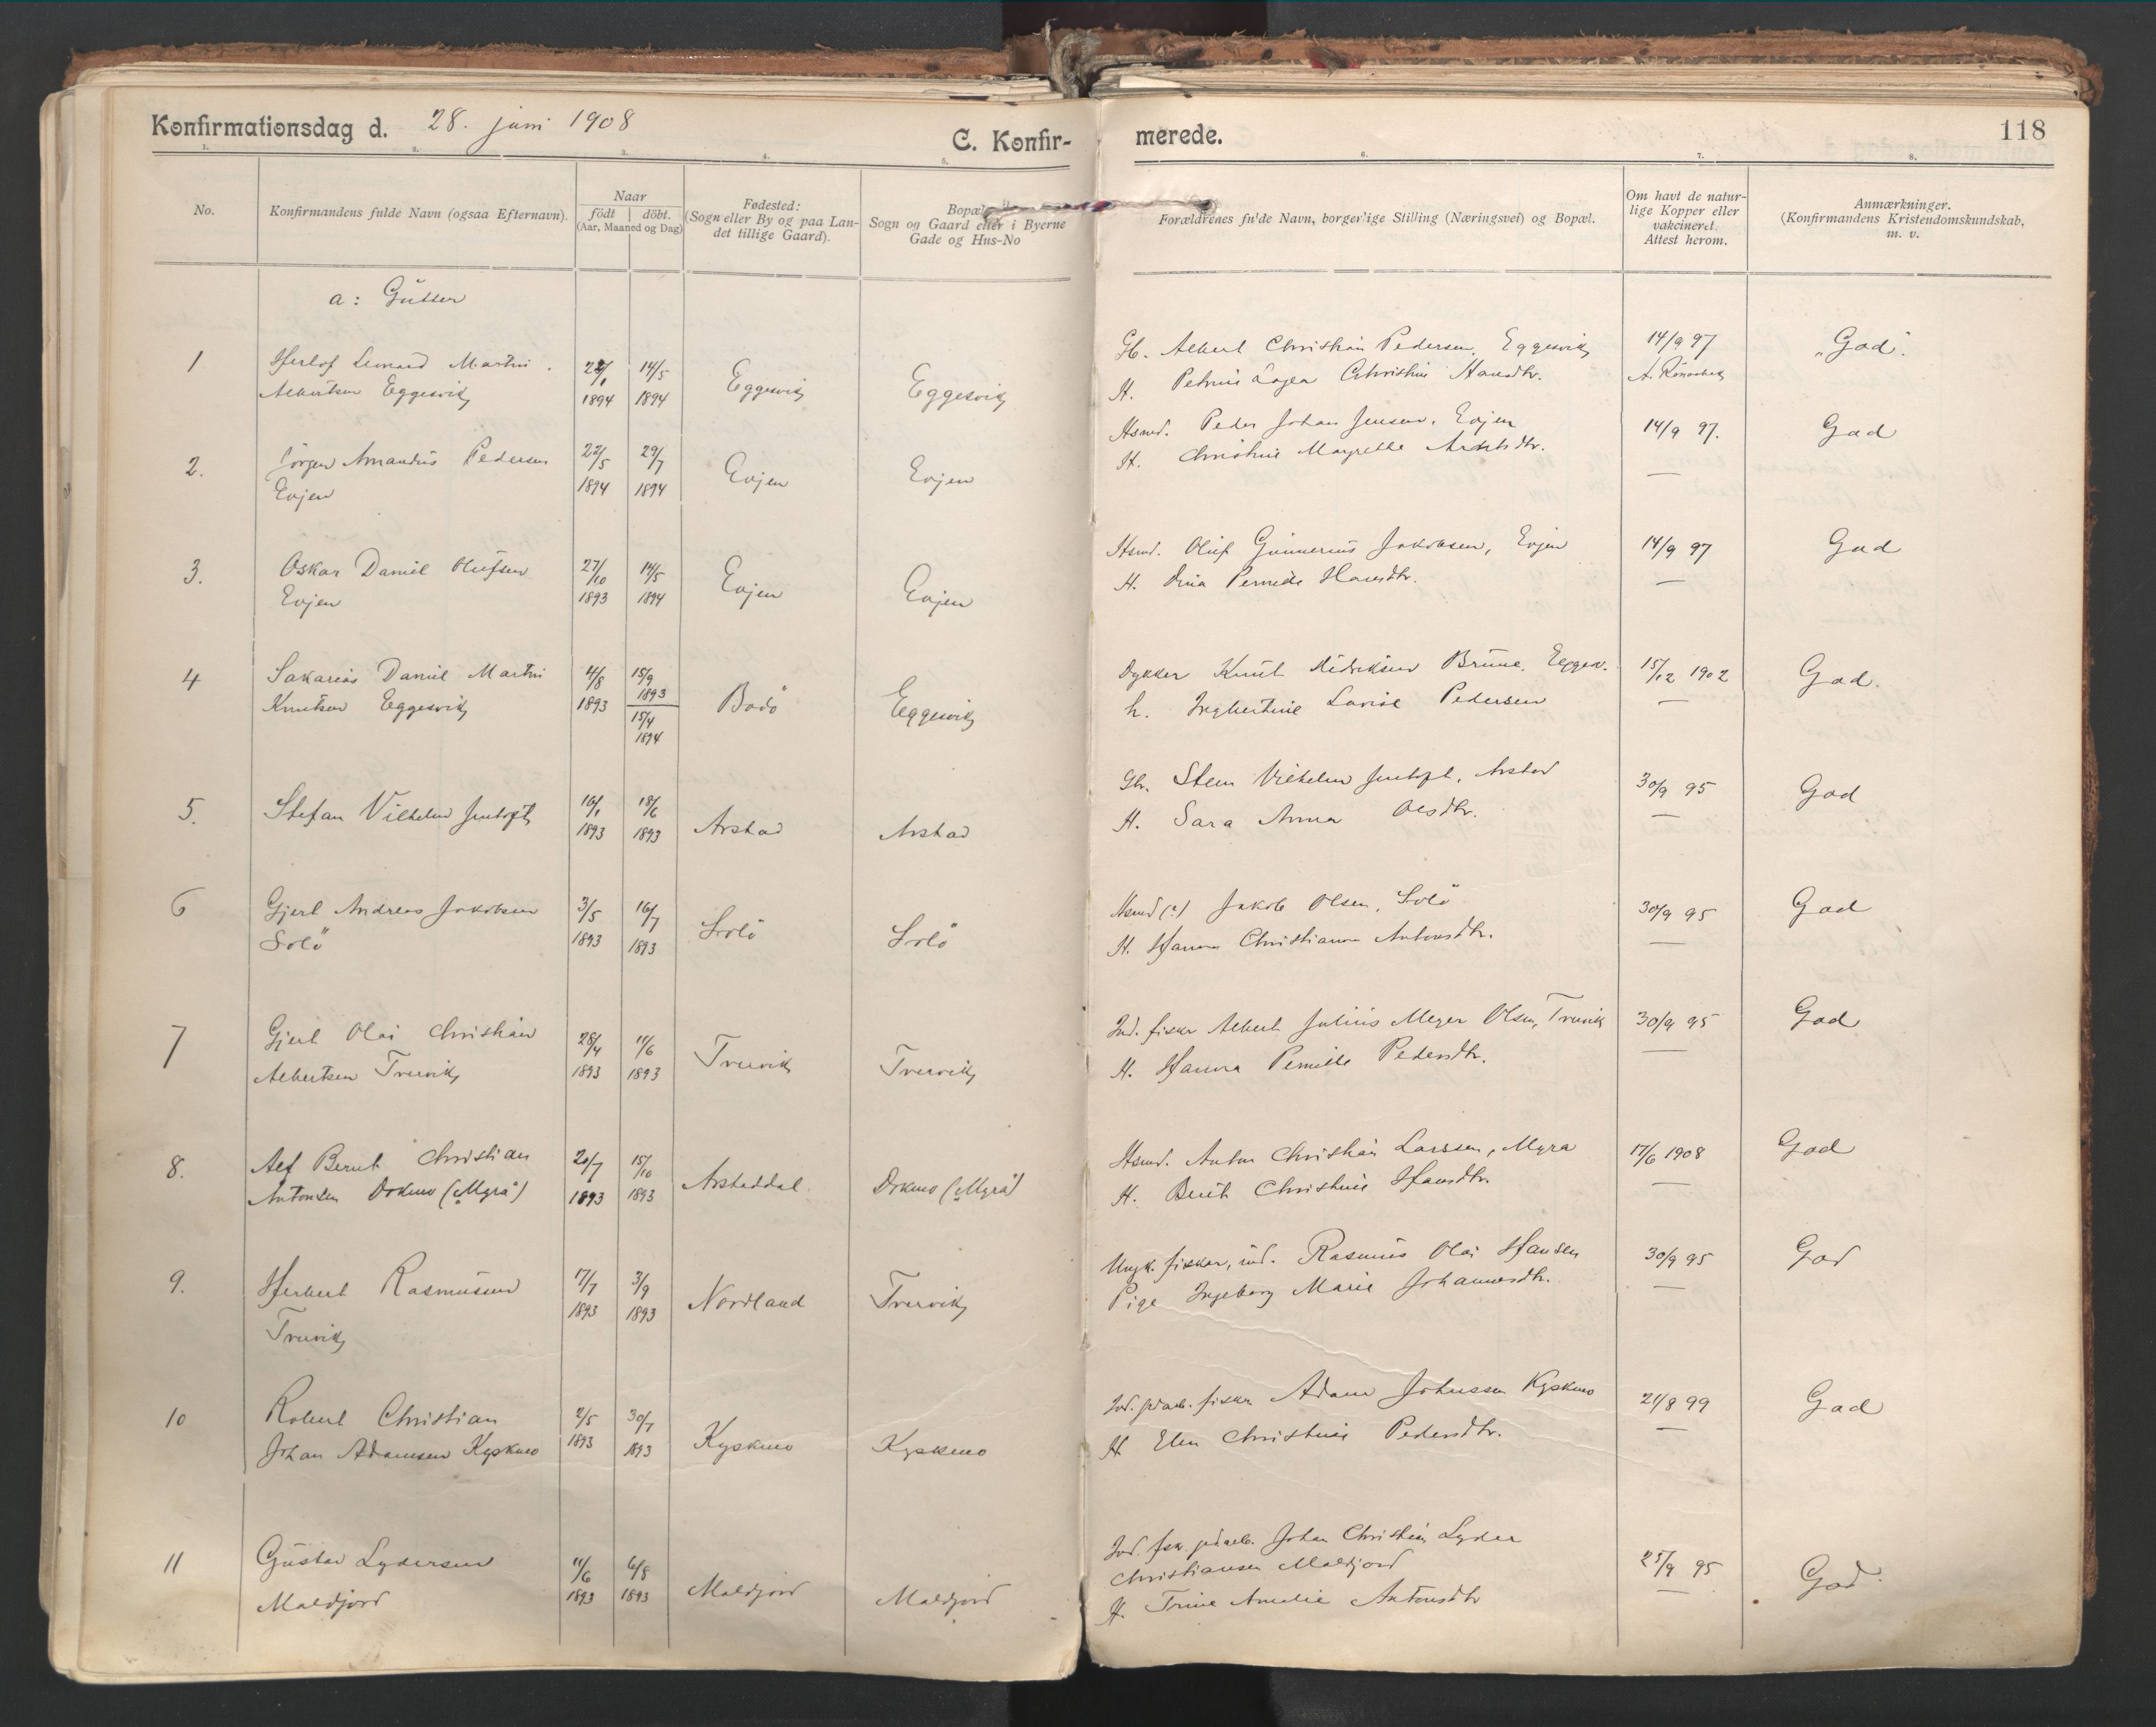 Konfirmationsdag d. 28. juni 1908
C. Konfir-
merede.
118
1. 2. 3. 4. 5. 6. 7. 8.
No.
Konfirmandens fulde Navn (ogsaa Efternavn).
Naar
födt döbt.
(Aar, Maaned og Dag)
Fødested:
(Sogn eller By og paa Lan-
det tillige Gaard).
Bopæl
Sogn og Gaard eller i Byerne
Gade og Hus-No
Forældrenes fulde Navn, borgerlige Stilling (Næringsvei) og Bopæl.
Om havt de natur-
lige Kopper eller
vakcineret.
Attest herom.
Anmærkninger.
(Konfirmandens Kristendomskundskab,
m. v.
a: Gutter
1 Herlof Leonard Martin 14/5 Gb. Albert Christian Pedersen, Eggesvik 14/9 97 "God".
Albertsen Eggesvik 1894 1894 Eggesvik Eggesvik H. Christine Hansdtr.
2. Jörgen Amandus Pedersen 22/5 29/7 Evjen Evjen Hsmd. Peder Johan Jensen, Evjen 14/9 97. God
Evjen 1894 1894 H. Christine Margrethe
3. Oskar Daniel Olufsen 27/10 14/5 Evjen Evjen Hsmd. Oluf Gunnerius Jakobsen, Evjen 14/9 97 God
Evjen 1893 1894 H. Dina Pernille Hansdtr.
4 Sakarias Daniel Martin 4/8 15/9 Dykker Knut Bruue, Eggesv. 15/12 1902 God.
Knutsen Eggesvik 1893 1893 Bodö Eggesvik h. Ingbertine Lovise Pedersen
15/4
1894
5. Stefan Vilhelm Jentoft 16/1 18/6 Arstad Arstad Gbr. Sten Vilhelm Jentoft, Arstad 30/9 95 God
1893 1893 H. Sara Anna Olsdtr.
6 Gjert Andreas Jakobsen 3/5 16/7 Solö Solö Hsmd (?) Jakob Olsen, Solö 30/9 95 God
Solö 1893 1893 H. Hanna Christianna Antonsdtr.
7 Gjert Olai Christian 28/4 11/6 Trervik Trervik Ind. fisker Albert Julius Meyer Olsen, Trervik 30/9 95 God
Albertsen Trervik 1893 1893 H. Hanna Pernille Pedersdtr.
8. Alf Bernt Christian 20/7 15/10 Arstaddal Dokmo (Myra) Hsmd. Anton Christian Larssen, Myra 17/6 1908 God
Antonsen Dokmo (Myra) 1893 1893 H. Berit Christine Hansdtr.
9. Herbert Rasmussen 17/7 3/9 Nordland Trervik Ungk. fisker, ind. Rasmus Olai Hansen 30/9 95 God
Trervik 1893 1893 Pige Ingeborg Marie Johannesdtr.
10 Robert Christian 2/5 30/7 Kypkmo Kypkmo Ind. jordarb. fisker Adam Johnssen Kypkmo 21/8 99 God
Johan Adamsen Kypkmo 1893 1893 H Elen Christine Pedersdtr.
11 Gustav Lydersen 11/6 6/8 Maldjord Maldjord Ind. fisk. jordarb. Johan Christian Lyder 25/9 95 God.
Maldjord 1893 1893 Christiansen Maldjord
H. Trine Amelie Antonsdtr